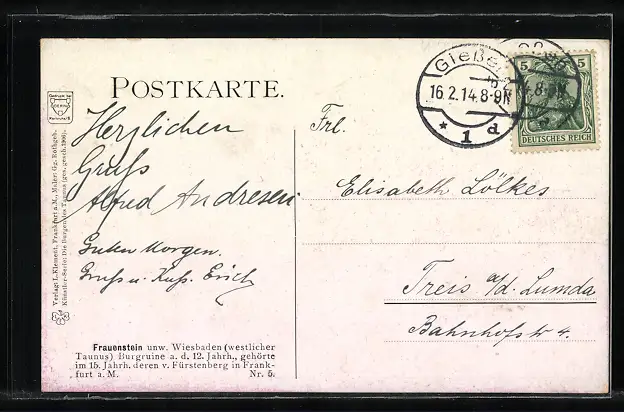 POSTKARTE.
Gießen
16.2.14.8-9N
* 1 d
5 5
DEUTSCHES REICH
Herzlichen
Gruß
Alfred Andresen
Guten Morgen.
Gruss u. Kuss. Erich
Frl.
Elisabeth Lölkes
Treis a/d. Lumda
Bahnhofstr 4.
Verlag: L. Klement, Frankfurt a. M., Maler: Gg. Rothgeb.
Künstler-Serie: Die Burgen des Taunus (ges. gesch. 1906).
Frauenstein unw. Wiesbaden (westlicher
Taunus) Burgruine a. d. 12. Jahrh., gehörte
im 15. Jahrh. deren v. Fürstenberg in Frank-
furt a. M. Nr. 5.